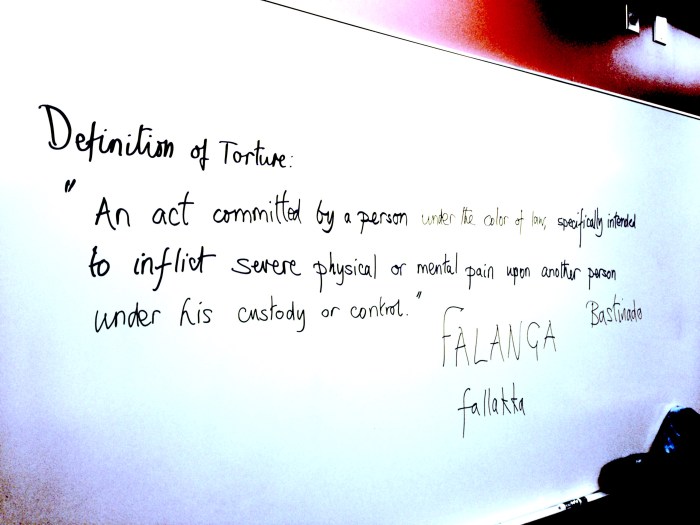 Definition of Torture:
"An act committed by a person under the color of law, specifically intended
to inflict severe physical or mental pain upon another person
under his custody or control."
FALANGA Bastinado
fallakka